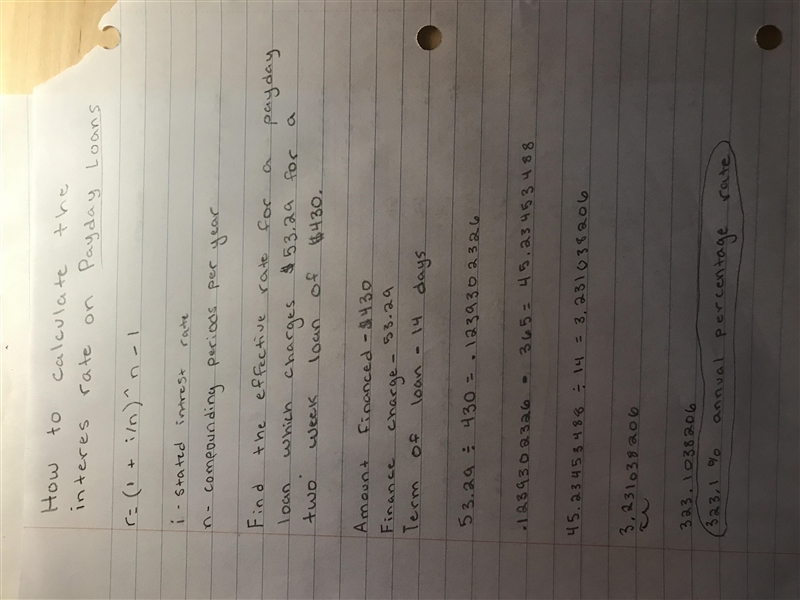 How to calculate the
interes rate on Payday Loans
r= (1 + i/n)^n - 1
i - stated intrest rate
n - compounding periods per year
Find the effective rate for a payday
loan which charges $53.29 for a
two week loan of $430.
Amount Financed - $430
Finance charge - 53.29
Term of loan - 14 days
53.29 ÷ 430 = .1239302326
.1239302326 • 365 = 45.23453488
45.23453488 ÷ 14 = 3.231038206
3.231038206
323.1038206
323.1% annual percentage rate